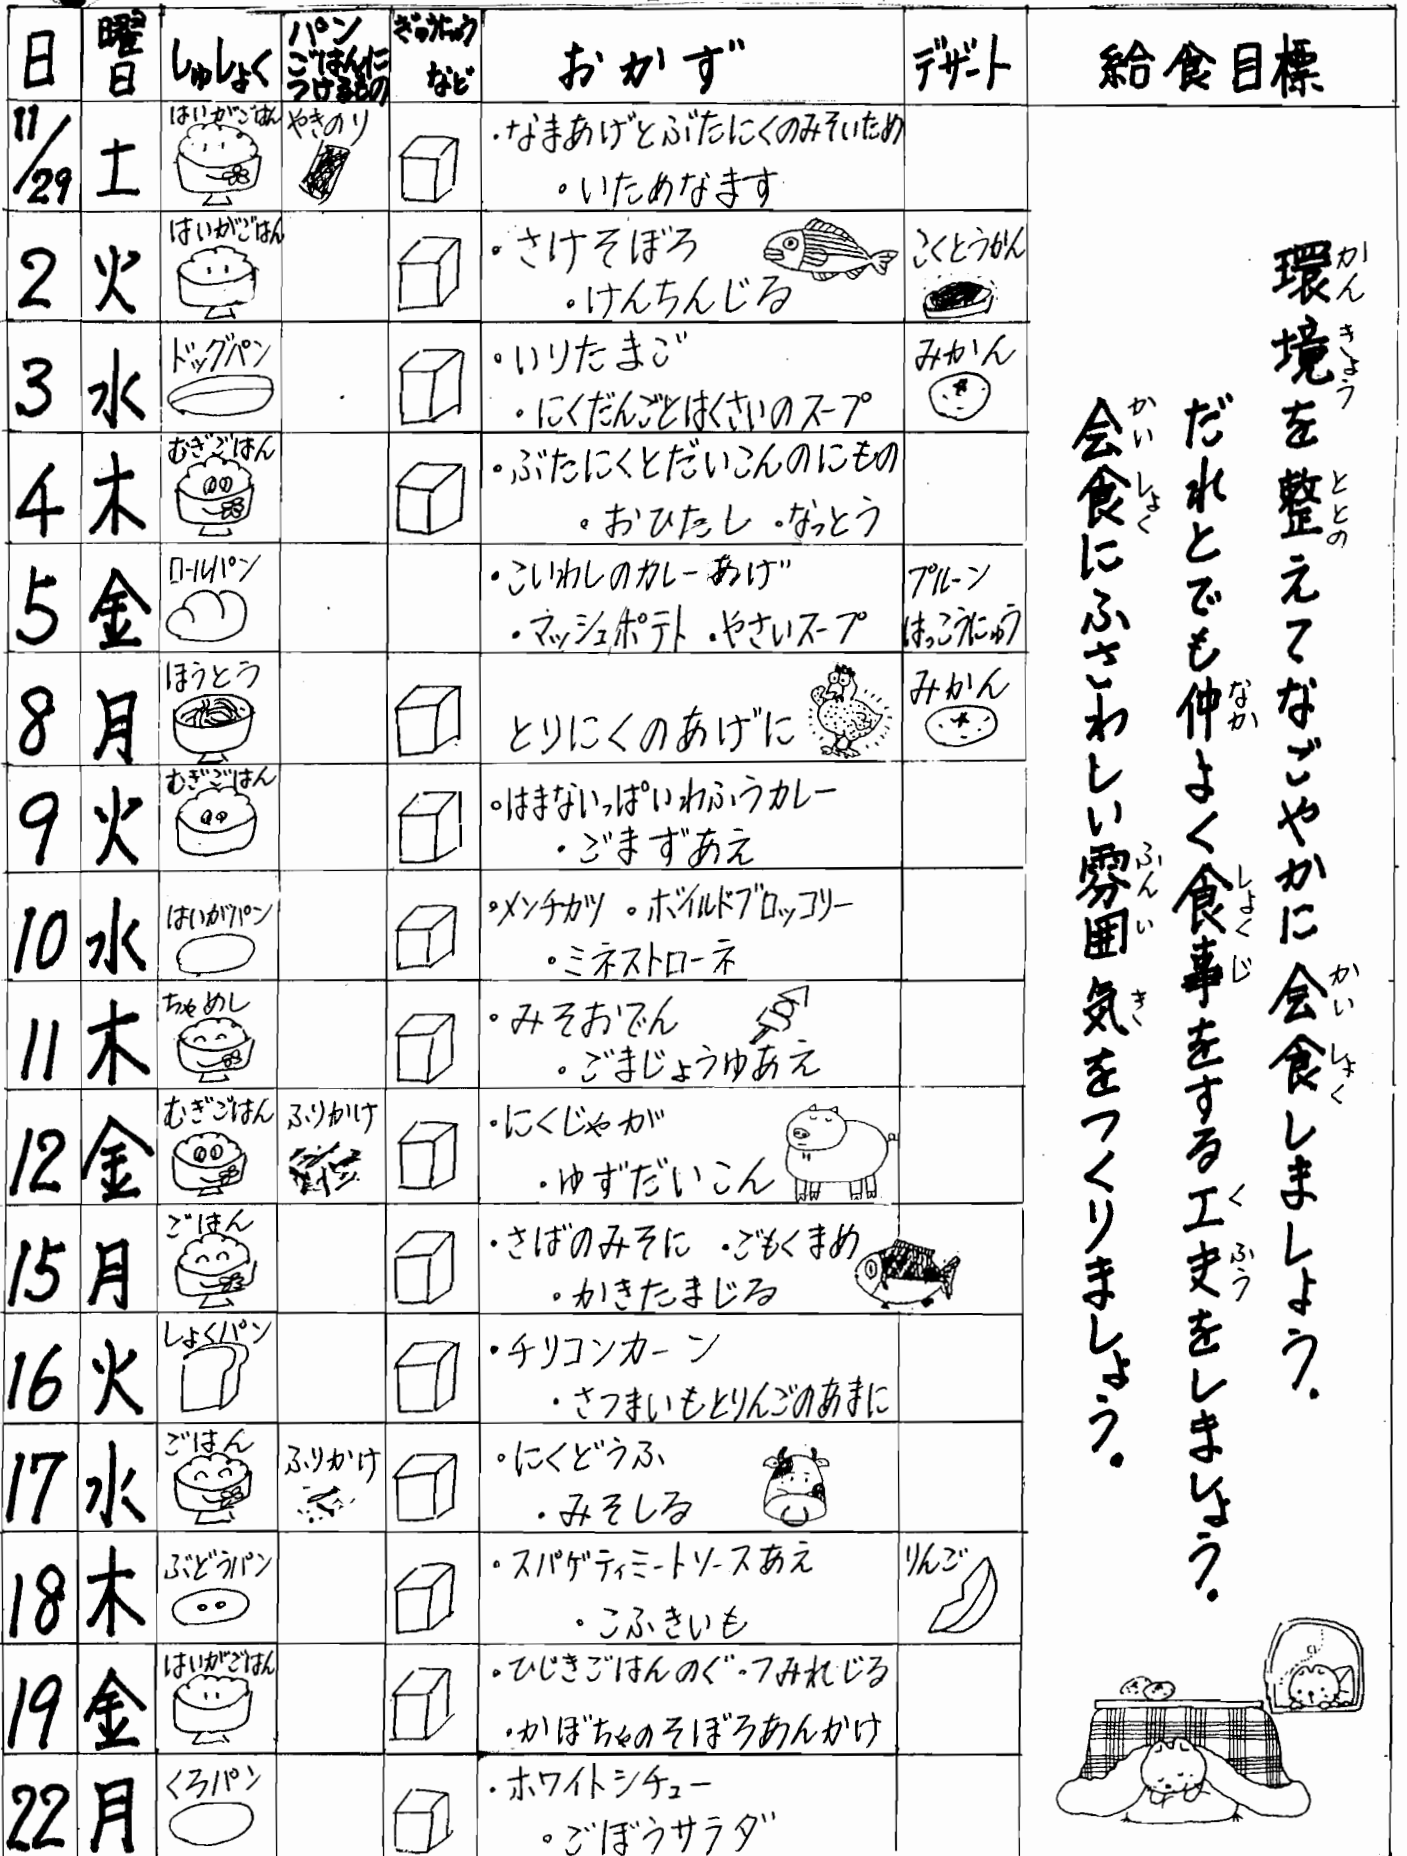 日 曜日 しゅしょく パンごはんにつけるもの ぎゅうにゅうなど おかず デザート 給食目標
11/29 土 はいがごはん やきのり ・なまあげとぶたにくのみそいため
・いためなます
2 火 はいがごはん ・さけそぼろ こくとうかん
・けんちんじる
3 水 ドッグパン ・いりたまご みかん
・にくだんごとはくさいのスープ
4 木 むぎごはん ・ぶたにくとだいこんのにもの
・おひたし ・なっとう
5 金 ロールパン ・こいわしのカレーあげ プルーン
・マッシュポテト ・やさいスープ はっこうにゅう
8 月 ほうとう とりにくのあげに みかん
9 火 むぎごはん ・はまないっぱいわふうカレー
・ごまずあえ
10 水 はいがパン ・メンチカツ ・ボイルドブロッコリー
・ミネストローネ
11 木 ちゃめし ・みそおでん
・ごまじょうゆあえ
12 金 むぎごはん ふりかけ ・にくじゃが
・ゆずだいこん
15 月 ごはん ・さばのみそに ・ごもくまめ
・かきたまじる
16 火 しょくパン ・チリコンカーン
・さつまいもとりんごのあまに
17 水 ごはん ふりかけ ・にくどうふ
・みそしる
18 木 ぶどうパン ・スパゲティミートソースあえ りんご
・こふきいも
19 金 はいがごはん ・ひじきごはんのぐ ・つみれじる
・かぼちゃのそぼろあんかけ
22 月 くろパン ・ホワイトシチュー
・ごぼうサラダ
環境を整えてなごやかに会食しましょう。
かんきょう ととの かいしょく
だれとでも仲よく食事をする工夫をしましょう。
なか しょくじ くふう
会食にふさわしい雰囲気をつくりましょう。
かいしょく ふんいき